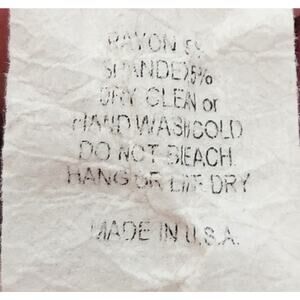 RAYON
SPANDEX 5%
DRY CLEAN or
HAND WASH COLD
DO NOT BLEACH
HANG OR LINE DRY
MADE IN U.S.A.